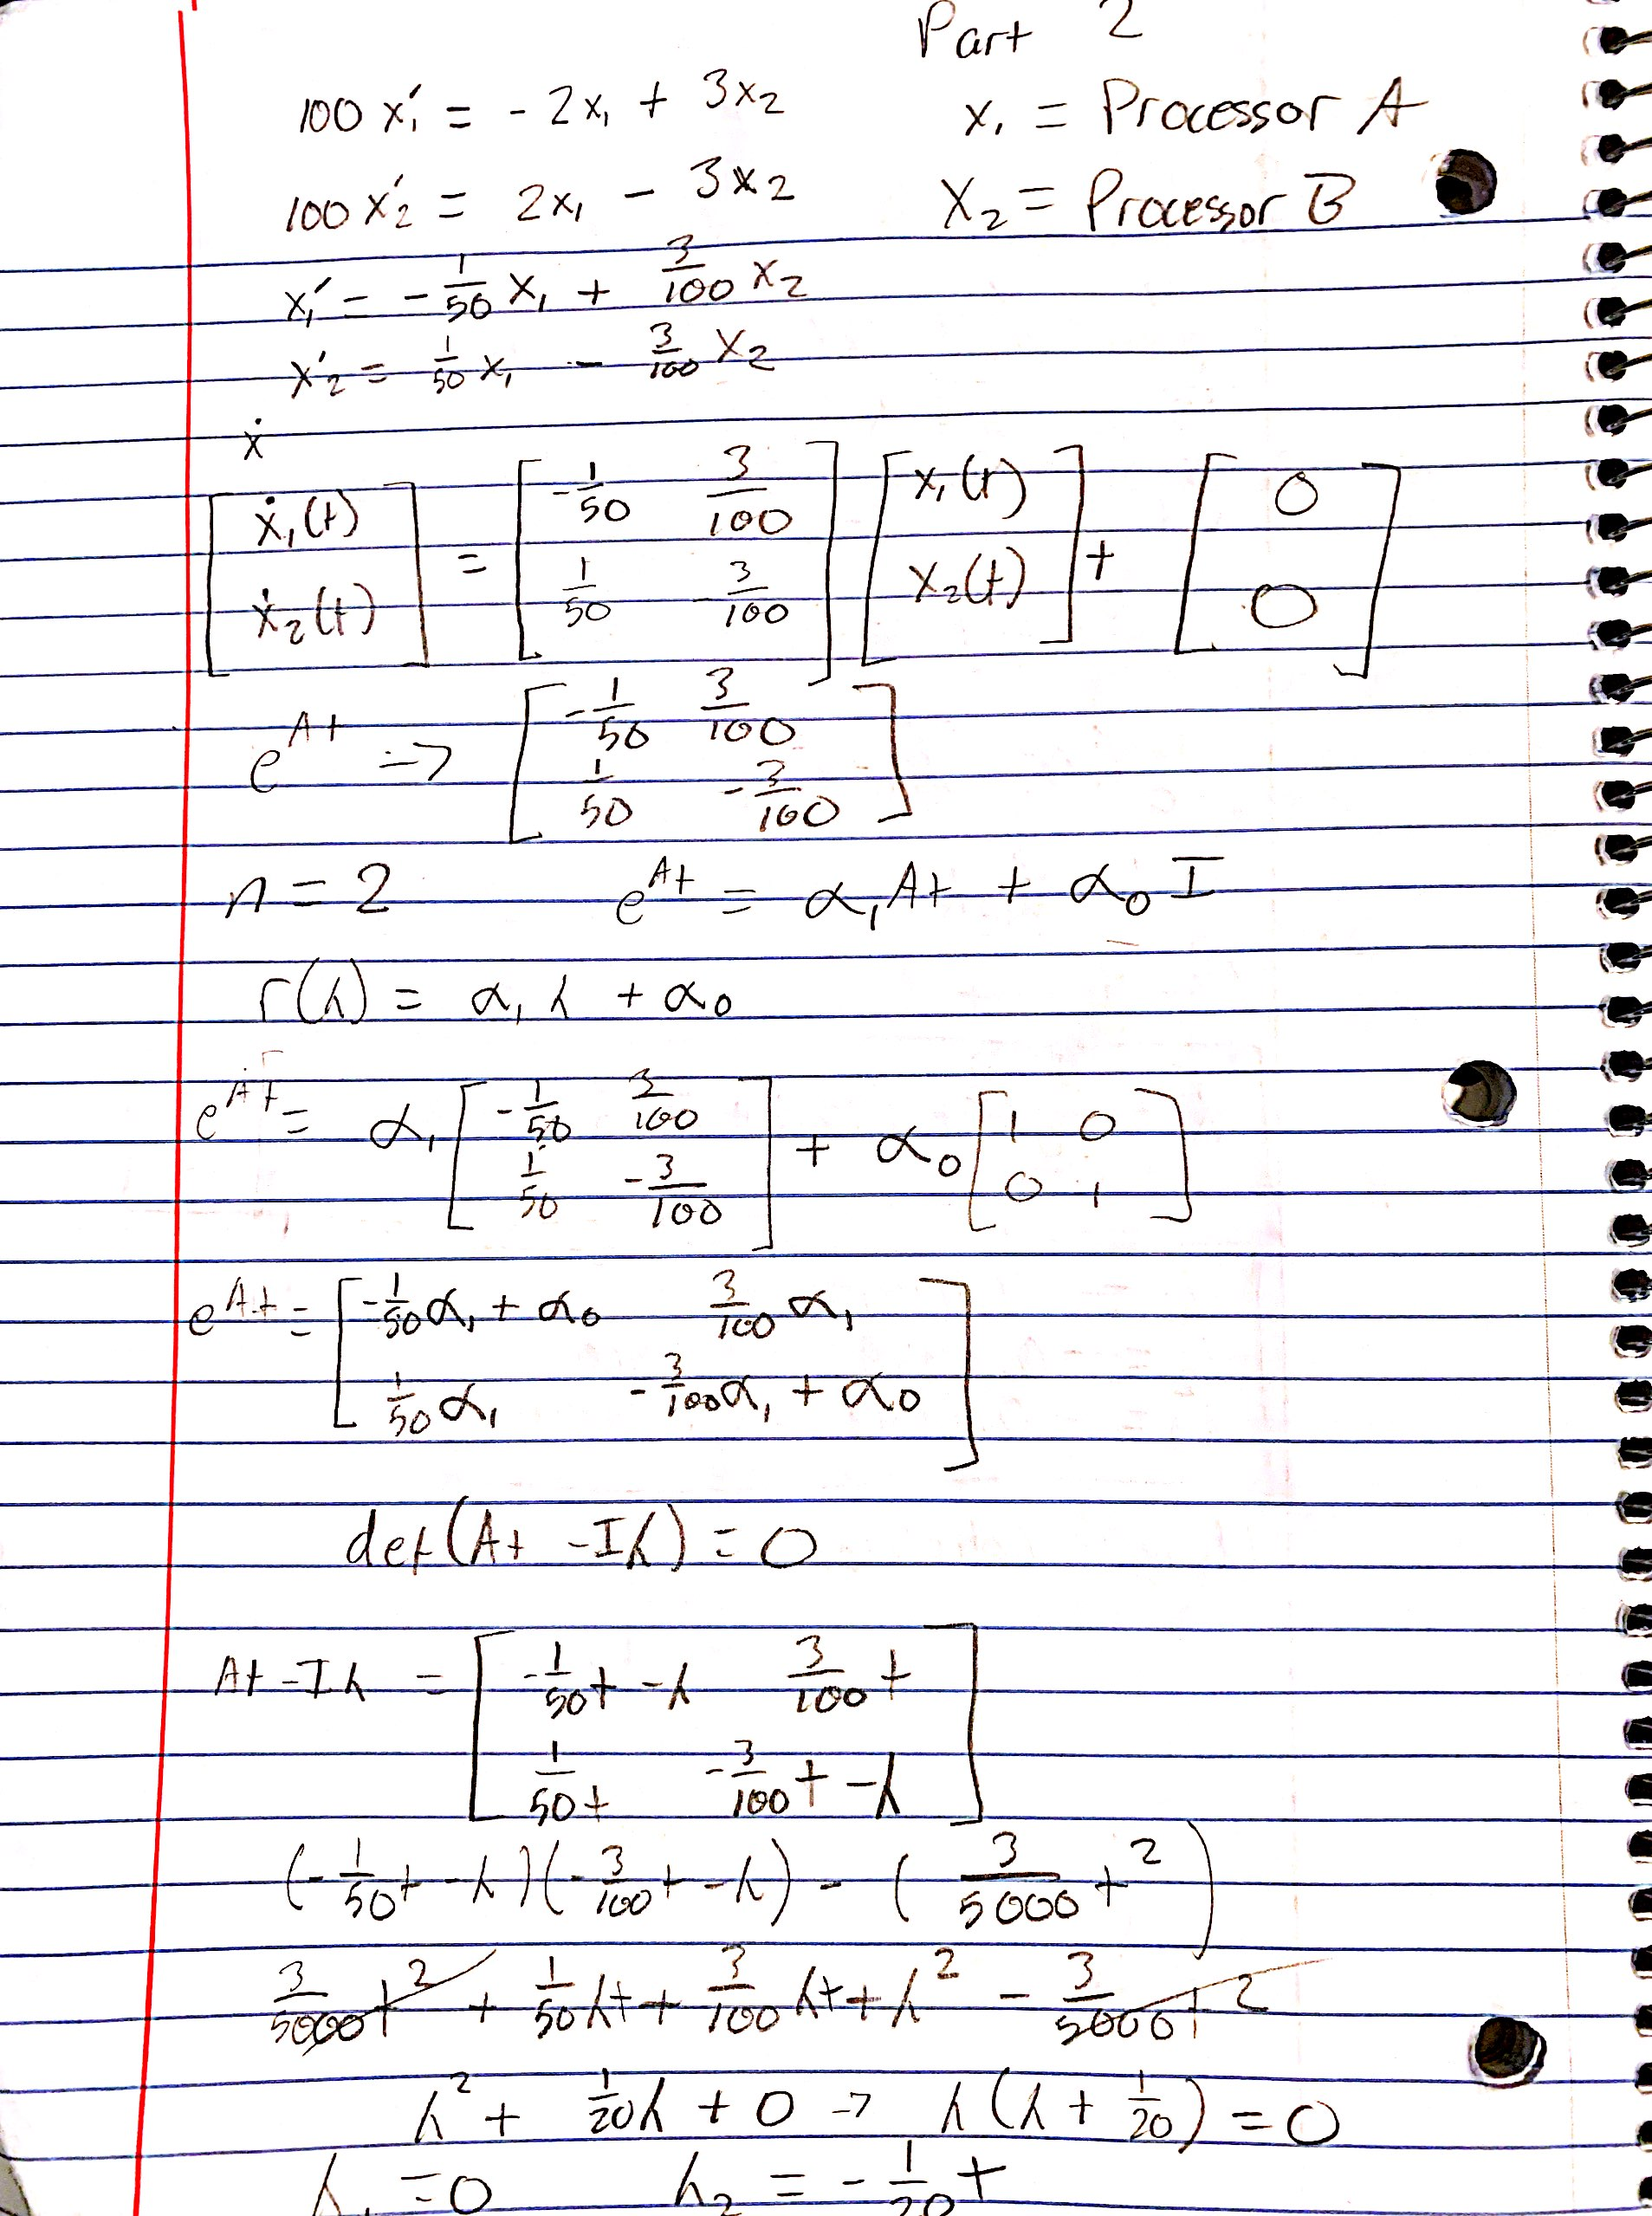 Part 2
100 x₁′ = - 2x₁ + 3x₂ x₁ = Processor A
100 x₂′ = 2x₁ - 3x₂ x₂ = Processor B
x₁′ = - 1/50 x₁ + 3/100 x₂
x₂′ = 1/50 x₁ - 3/100 x₂
ẋ
[ẋ₁(t) ; ẋ₂(t)] = [-1/50 3/100 ; 1/50 -3/100] [x₁(t) ; x₂(t)] + [0 ; 0]
e^At => [-1/50 3/100 ; 1/50 -3/100]
n = 2 e^At = α₁At + α₀I
r(λ) = α₁λ + α₀
e^At = α₁ [-1/50 3/100 ; 1/50 -3/100] + α₀ [1 0 ; 0 1]
e^At = [-1/50 α₁ + α₀ 3/100 α₁ ; 1/50 α₁ -3/100 α₁ + α₀]
det(At - Iλ) = 0
At - Iλ = [-1/50 t - λ 3/100 t ; 1/50 t -3/100 t - λ]
(-1/50 t - λ)(-3/100 t - λ) - (3/5000 t²)
3/5000 t² + 1/50 λt + 3/100 λt + λ² - 3/5000 t²
λ² + 1/20 λ + 0 → λ(λ + 1/20) = 0
λ₁ = 0 λ₂ = - 1/20 t